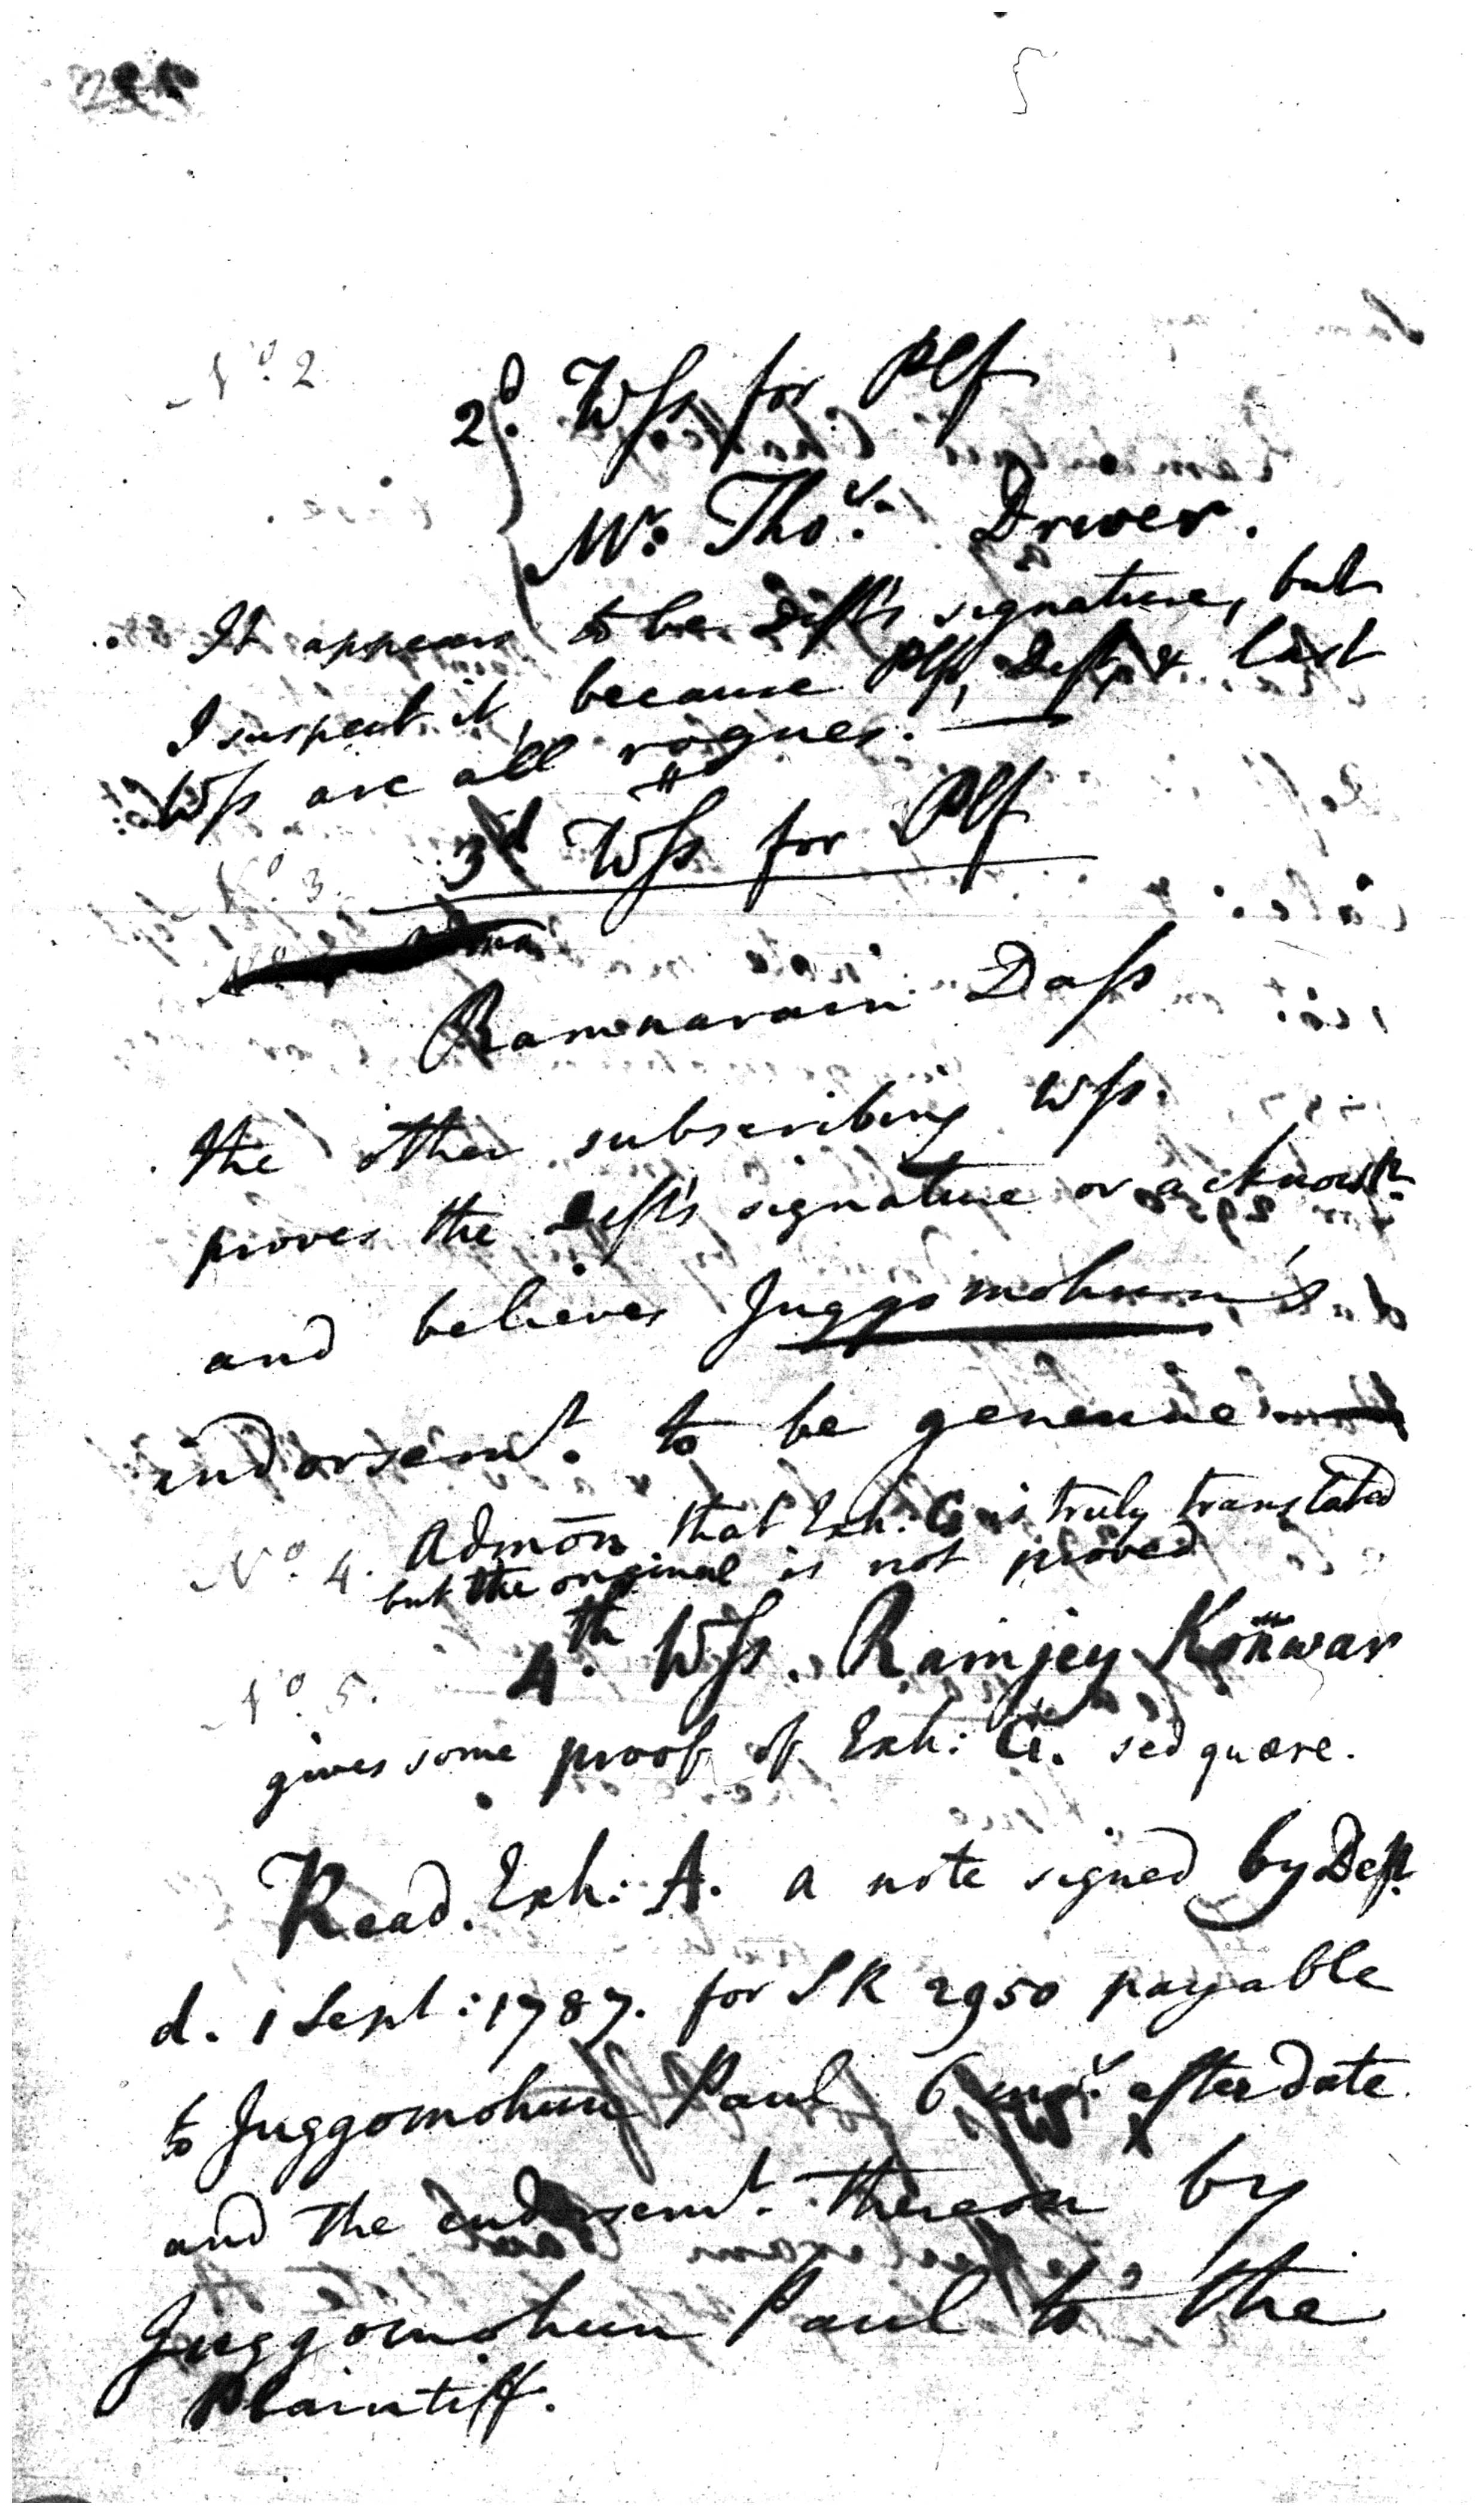 No. 2
2d. Wss for Plf
Mr. Thos. Driver.
It appears to be Deft's signature, but
I suspect it, because Plf, Deft, & last
Wss are all rogues. —
3d Wss for Plf
No. 3.
Ramnarain Dass
the other subscribing Wss.
proves the Deft's signature or
and believes Juggomohun's
indorsemt. to be geneune
No. 4. Admōn that Exh. G is truly translated
but the original is not proved
4th. Wss. Ramjey Konwar
No. 5.
gives some proof of Exh: G. sed quære.
Read. Exh: A. a note signed by Deft.
d. 1 Sept: 1787. for SR 2950 payable
to Juggomohun Paul 6 mos. after date
and the endorsemt. thereon by
Juggomohun Paul to the
Plaintiff.